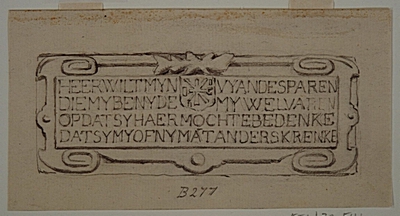 HEER WILT MYN VYANDE SPAREN
DIE MY BENYDE MY WELVAREN
OPDAT SY HAER MOCHTE BEDENKE
DAT SY MY OF NYMAT ANDERS KRENKE
B277